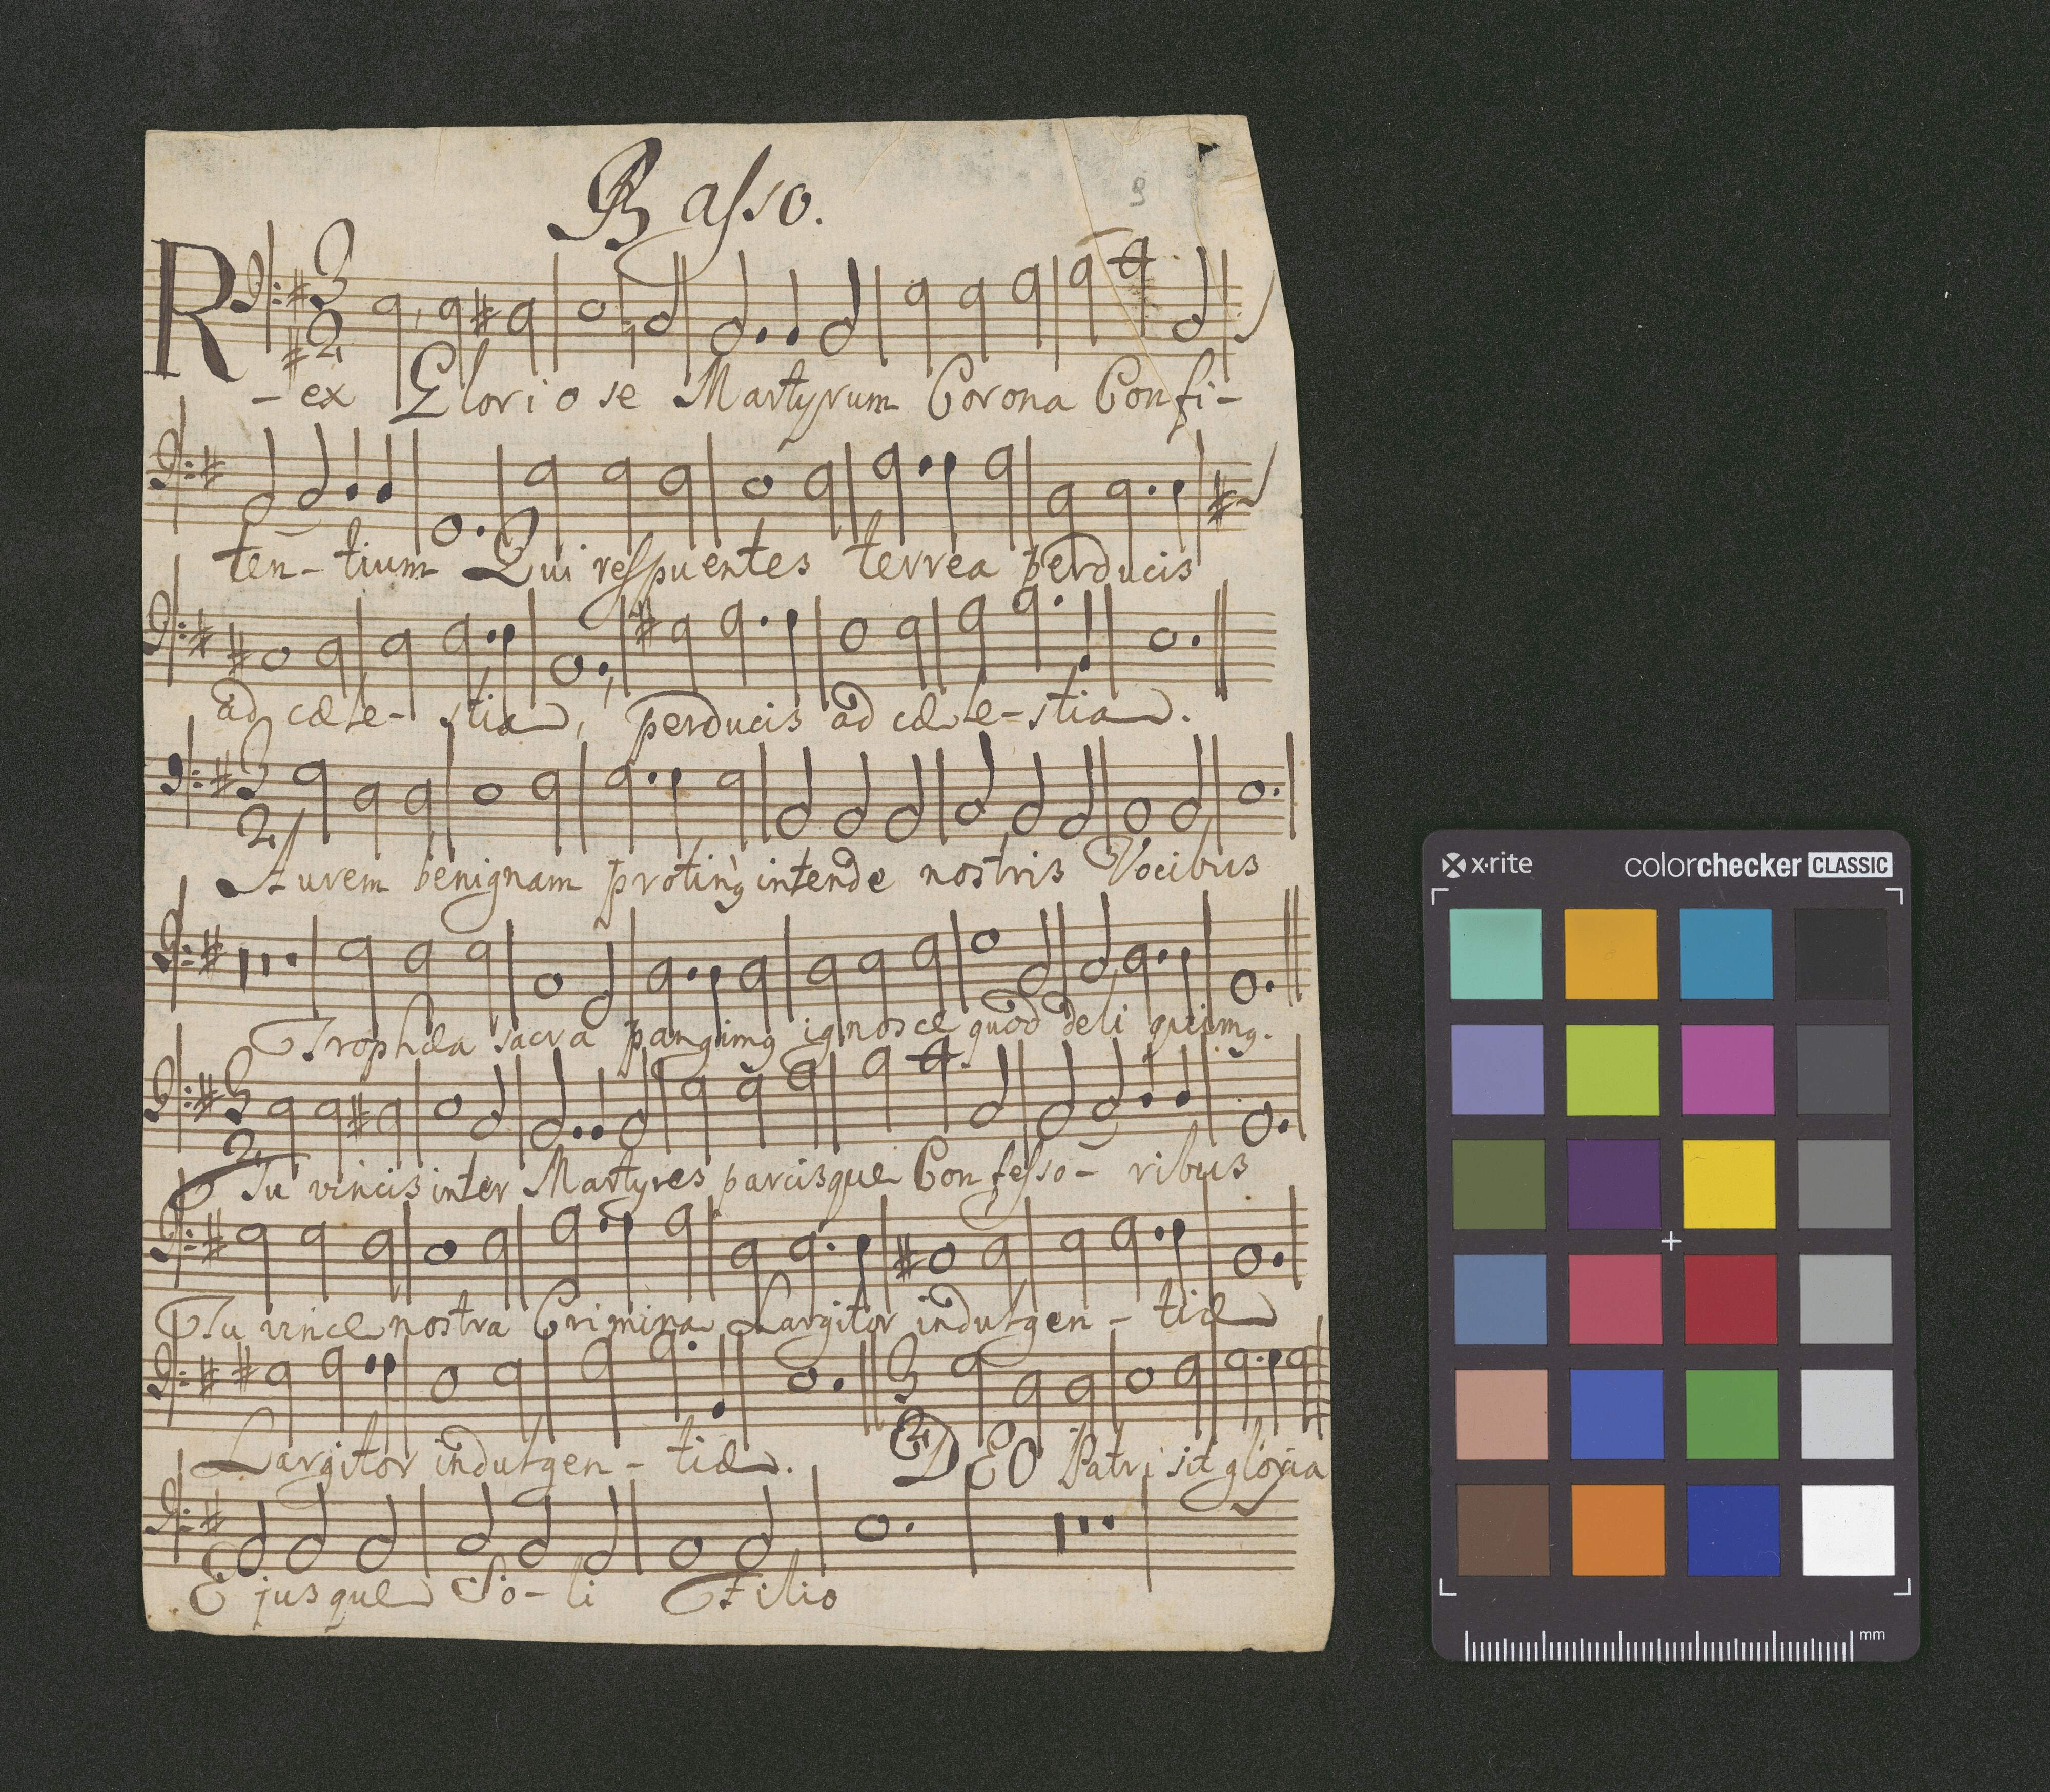 Basso.
9
Rex Gloriose Martyrum Corona Confi-
ten-tium Qui respuentes terrea perducis
ad cæle-stia, perducis ad cæle-stia.
Aurem benignam protinq intende nostris Vocibus
Trophæa sacra pangimq ignosce quod deliquimq.
Tu vincis inter Martyres parcisque Confesso-ribus
Tu vince nostra Crimina Largitor indulgen-tiæ
Largitor indulgen-tiæ. DEO Patri sit gloria
Ejusque So-li Filio
x-rite colorchecker CLASSIC
mm